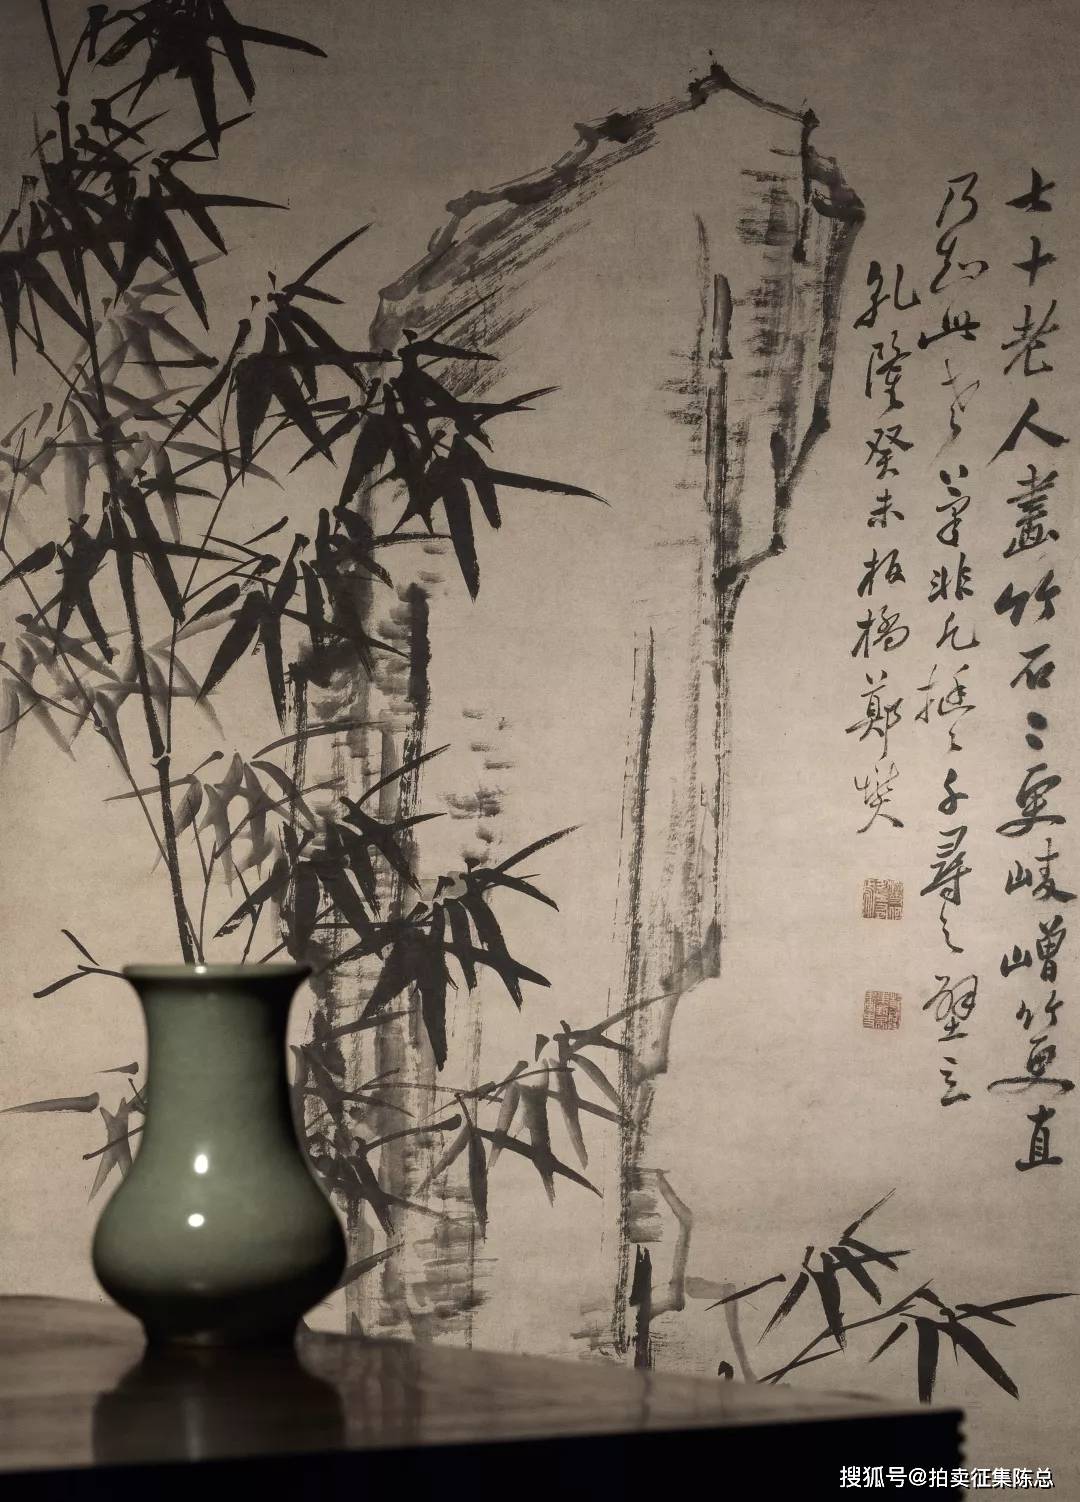 七十老人畫竹石〻更崚嶒竹更直
乃知此老筆非凡挺〻千尋之壁立
乾隆癸未板橋鄭燮
搜狐号@拍卖征集陈总